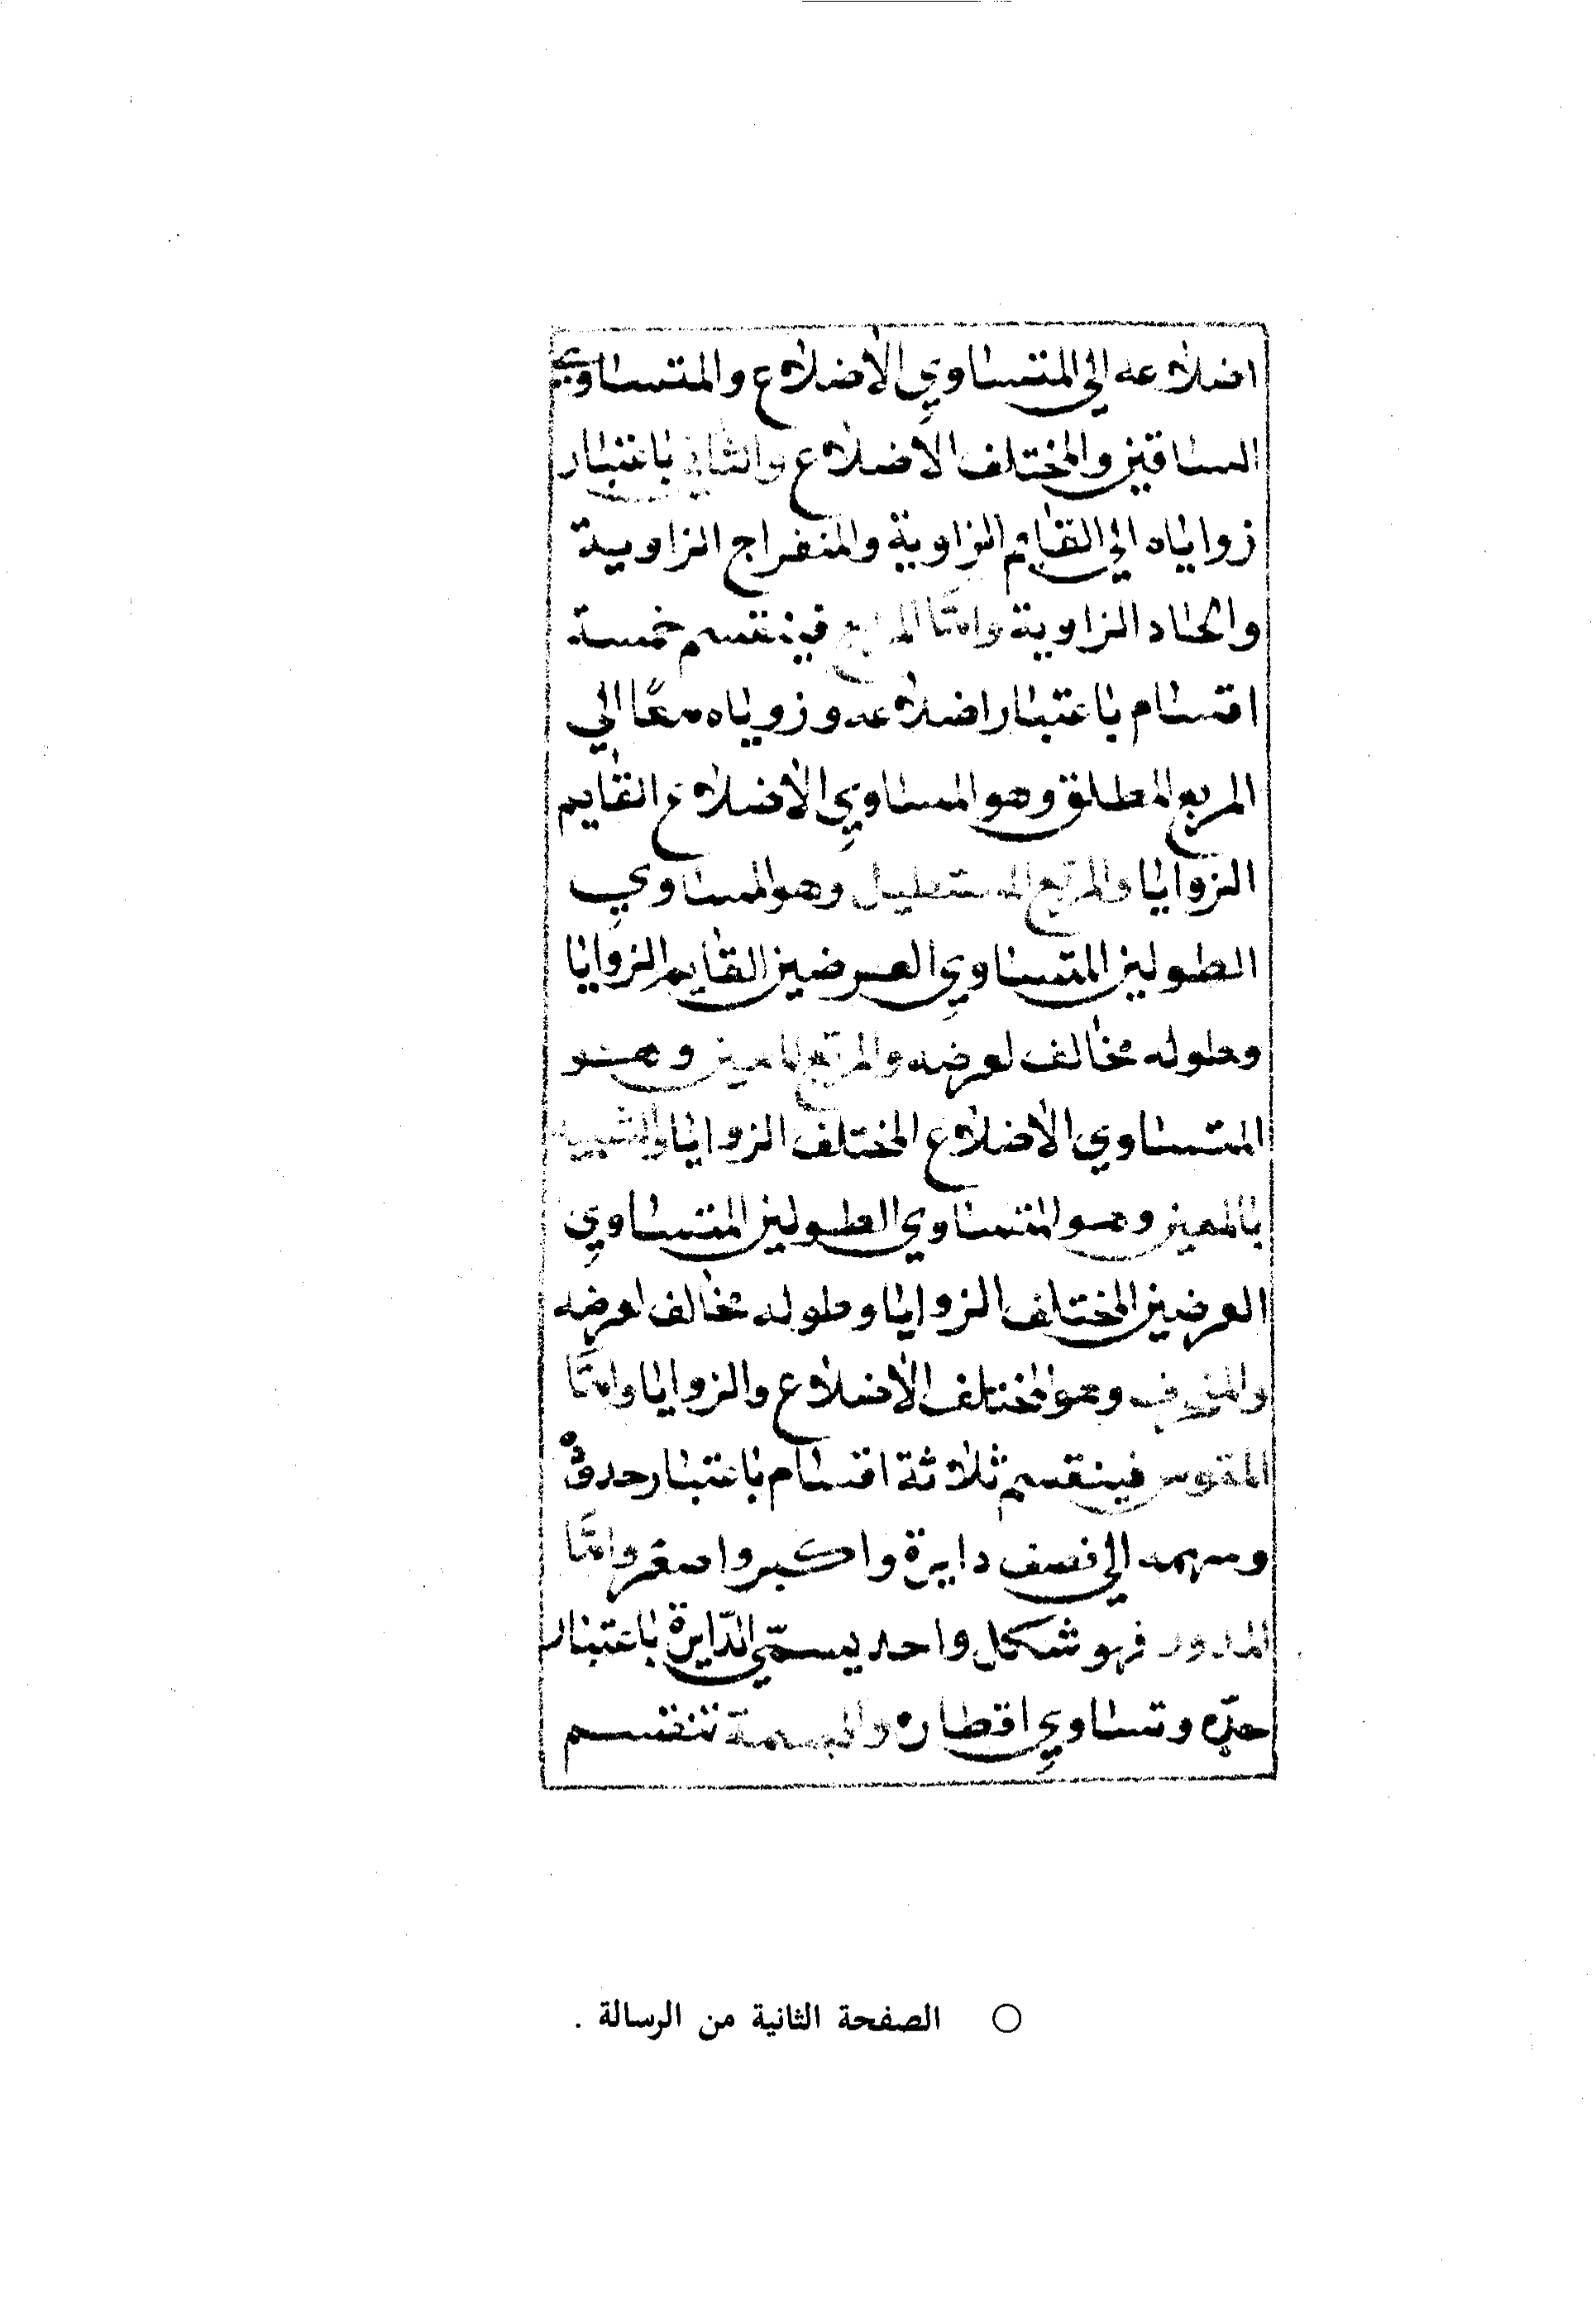 اضلاعه الي المتساوي الأضلاع والمتساوي
الساقين والمختلف الاضلاع والثاني باعتبار
زواياه الي القايم الزاوية والمنفراج الزاوية
والحاد الزاوية وامّا المربع فينقسم خمسة
اقسام باعتبار اضلاعه وزوياه معًا الي
المربع المطلق وهو المساوي الأضلاع القايم
الزوايا والمربّع المستطيل وهو المساوي
الطولين المتساوي العرضين القايم الزوايا
وطوله مخالف لعرضه والمربّع المعين وهو
المتساوي الأضلاع المختلف الزوايا والشبيه
بالمعين وهو المتساوي الطولين المتساوي
العرضين المختلف الزوايا وطوله مخالف لعرضه
والمنحرف وهو المختلف الأضلاع والزوايا وامّا
المقوس فينقسم ثلاثة اقسام باعتبار حدوده
وسهمه الي نصف دايرة واكبر واصغر وامّا
المدور فهو شكل واحد يسمّي الدّايرة باعتبار
حدّه وتساوي اقطاره والمجسمة تنقسم
○ الصفحة الثانية من الرسالة .